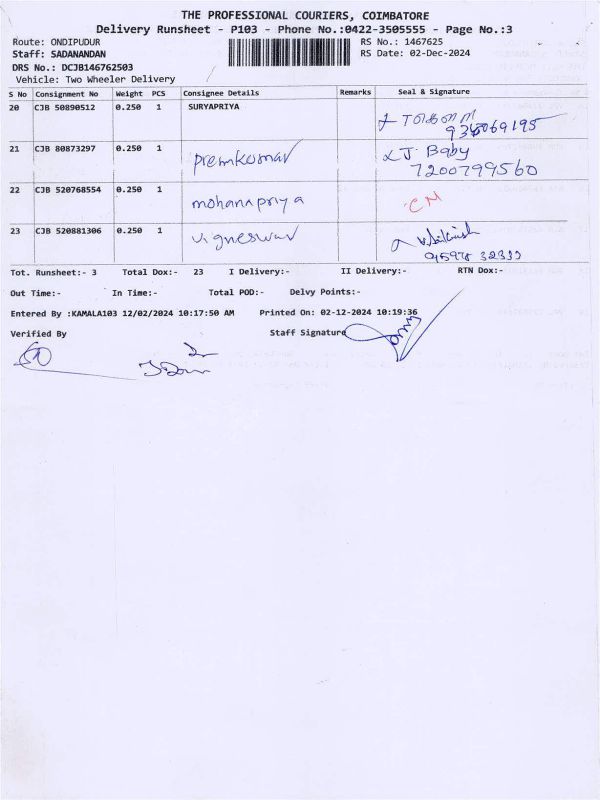 THE PROFESSIONAL COURIERS, COIMBATORE
Delivery Runsheet - P103 - Phone No.:0422-3505555 - Page No.:3
Route: ONDIPUDUR
RS No.: 1467625
Staff: SADANANDAN
RS Date: 02-Dec-2024
DRS No.: DCJB146762503
Vehicle: Two Wheeler Delivery
S No Consignment No Weight PCS Consignee Details Remarks Seal & Signature
20 CJB 50890512 0.250 1 SURYAPRIYA
21 CJB 80873297 0.250 1 premkumar J. Baby
7200799560
22 CJB 520768554 0.250 1 mohanapriya CM
23 CJB 520881306 0.250 1 vigneswar
Tot. Runsheet:- 3 Total Dox:- 23 I Delivery:- II Delivery:- RTN Dox:-
Out Time:- In Time:- Total POD:- Delvy Points:-
Entered By :KAMALA103 12/02/2024 10:17:50 AM Printed On: 02-12-2024 10:19:36
Verified By Staff Signature